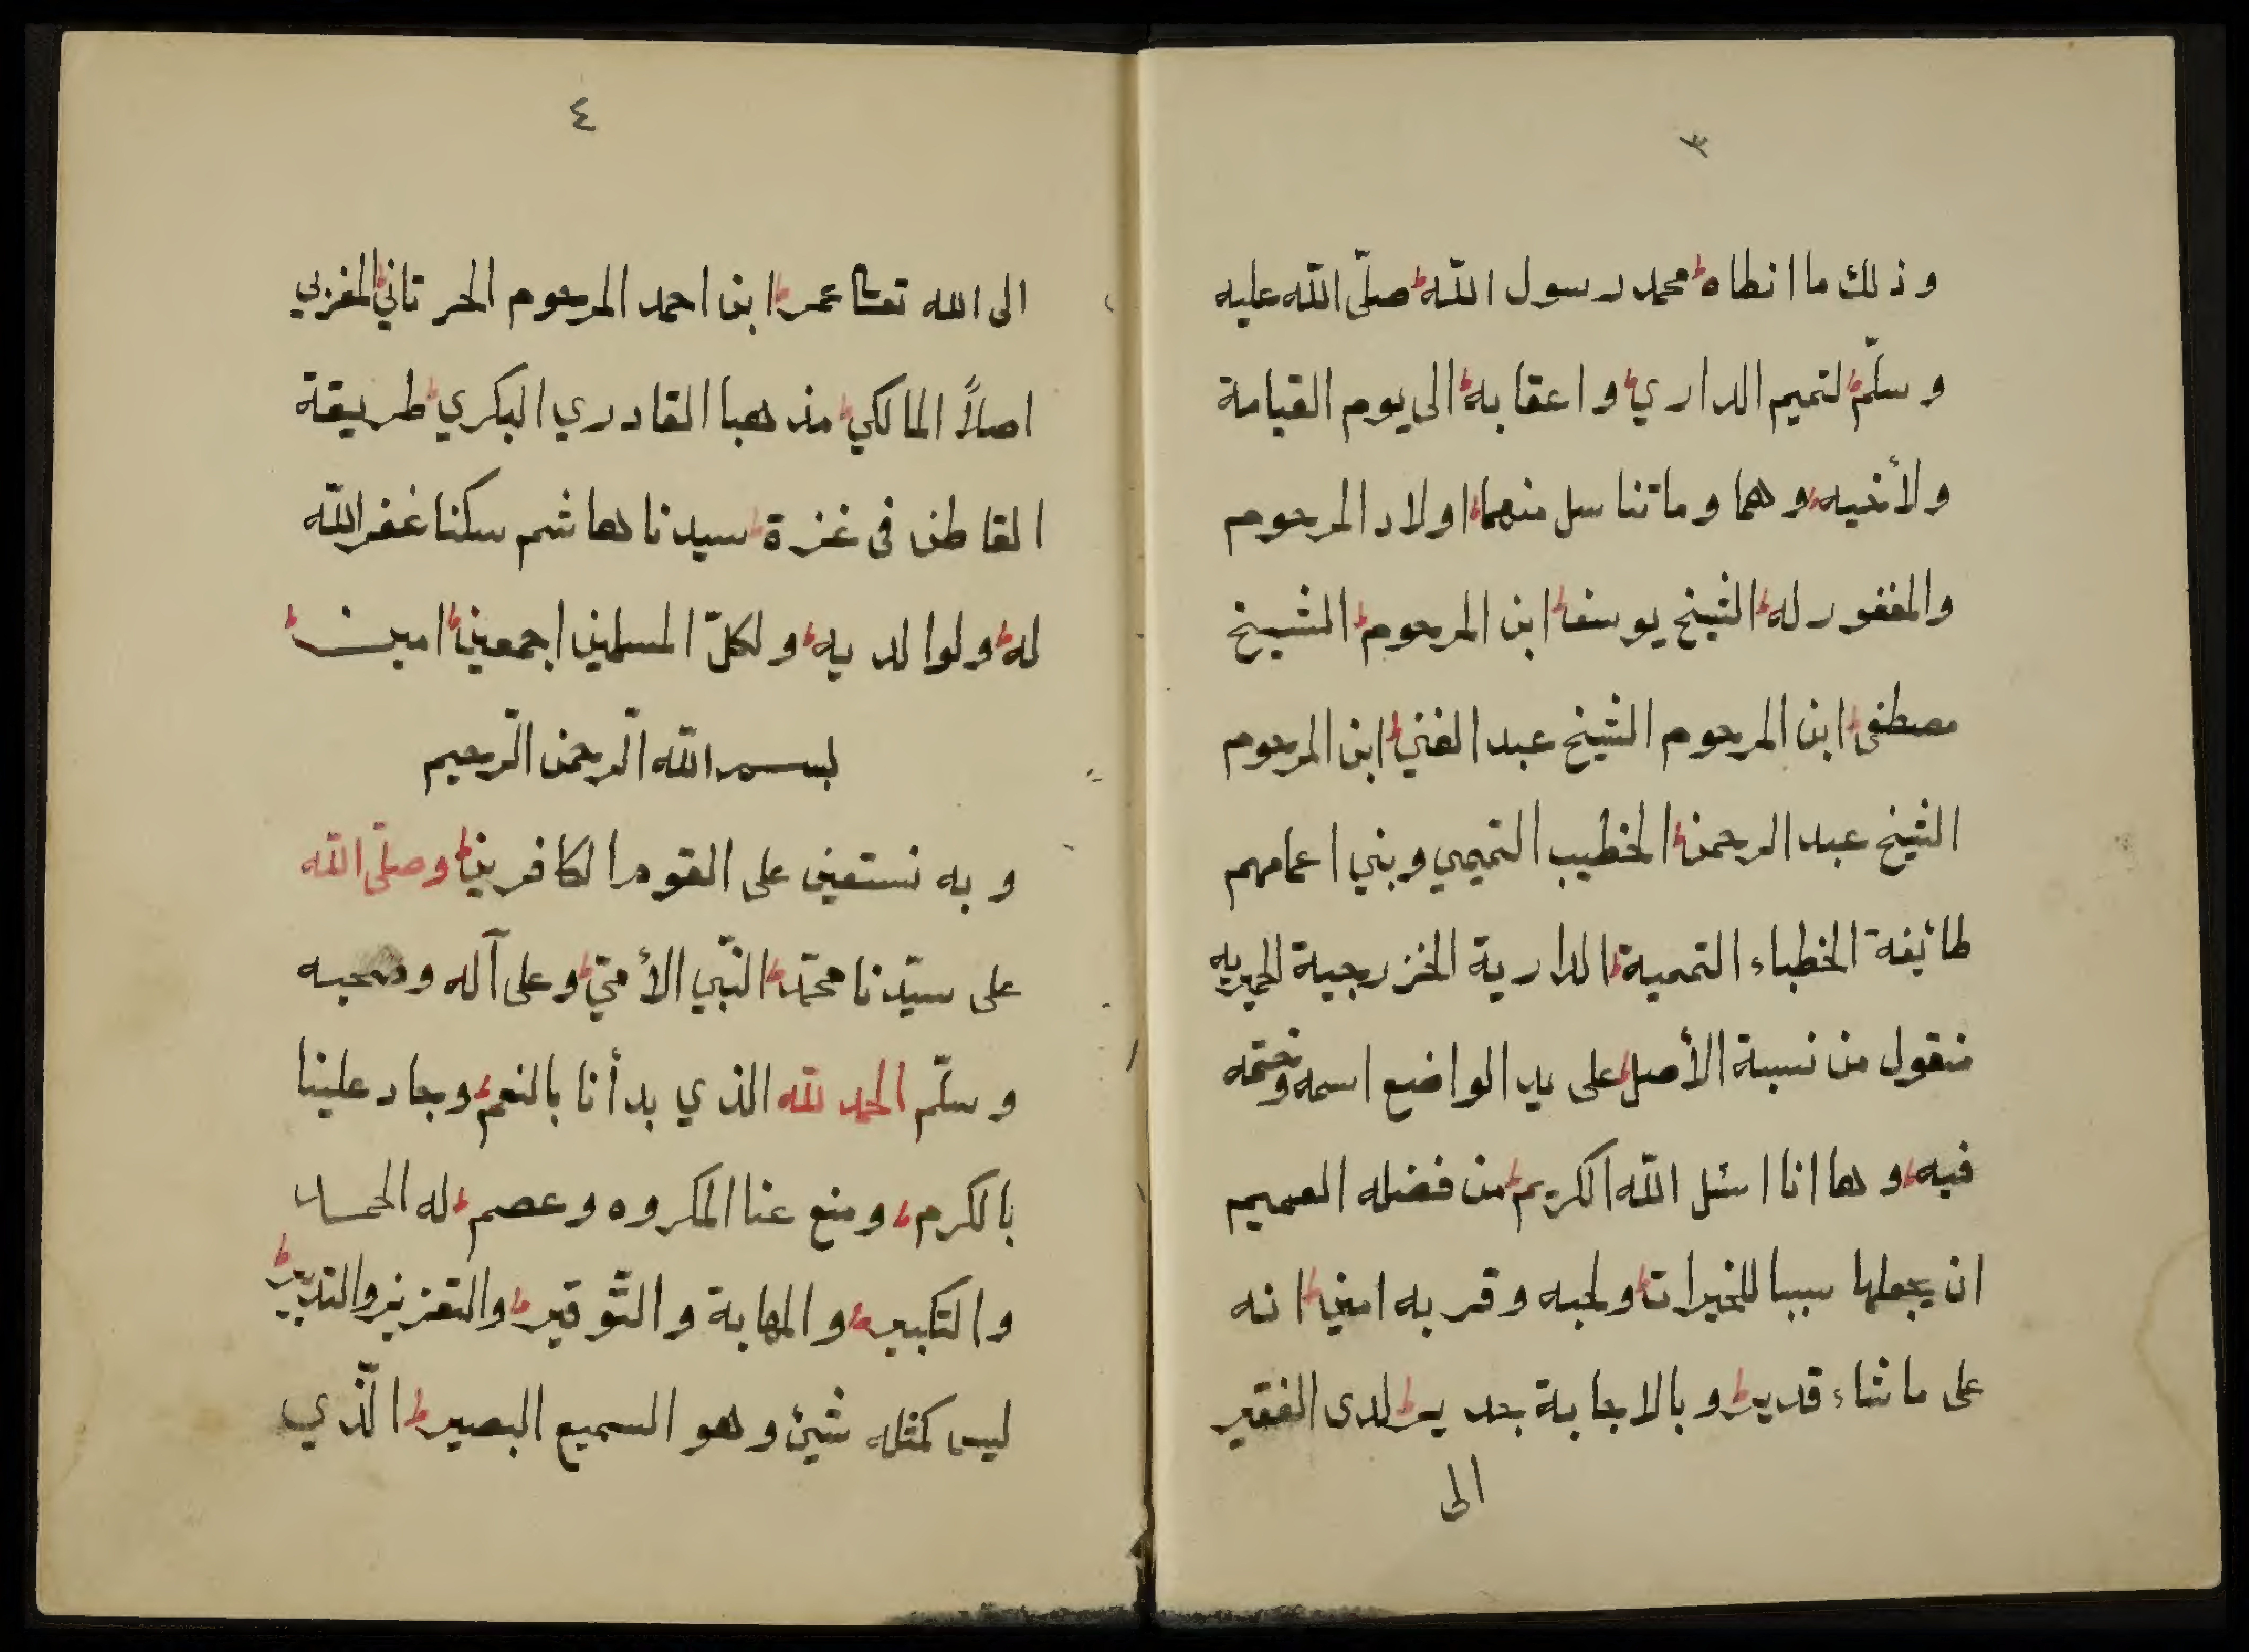 ٣
وذلك ما انطاه محمد رسول اللّه صلّى اللّه عليه
وسلّم لتميم الداري واعقابه الى يوم القيامة
ولأخيه وهما وما تناسل منهما اولاد المرحوم
والمغفور له الشيخ يوسف ابن المرحوم الشيخ
مصطفى ابن المرحوم الشيخ عبد الغني ابن المرحوم
الشيخ عبد الرحمن الخطيب التميمي وبني اعمامهم
طائيفة الخطباء التميمية الدارية الخزرجية الحميريه
منقول من نسبة الأصل على يد الواضع اسمه وختمه
فيه وها انا اسئل اللّه الكريم من فضله العميم
ان يجعلها سببا للخيرات ولحبه وقربه امين انه
على ما شاء قدير وبالاجابة جدير لدى الفقير
الى
٤
الى الله تعالى عمر ابن احمد المرحوم الحرتاني المغربي
اصلاً المالكي مذهبا القادري البكري طريقة
القاطن فى غزة سيدنا هاشم سكنا غفر اللّه
له ولوالديه ولكلّ المسلمين اجمعين امين
بسم اللّه الرّحمن الرّحيم
وبه نستعين على القوم الكافرين وصلّى اللّه
على سيّدنا محمّد النّبي الأمّي وعلى آله وصحبه
وسلّم الحمد للّه الذي بدأنا بالنعم وجاد علينا
بالكرم ومنع عنا المكروه وعصم له الحمد
والتكبير والمهابة والتّوقير والتعزيز والتدبير
ليس كمثله شيئ وهو السميع البصير الّذي